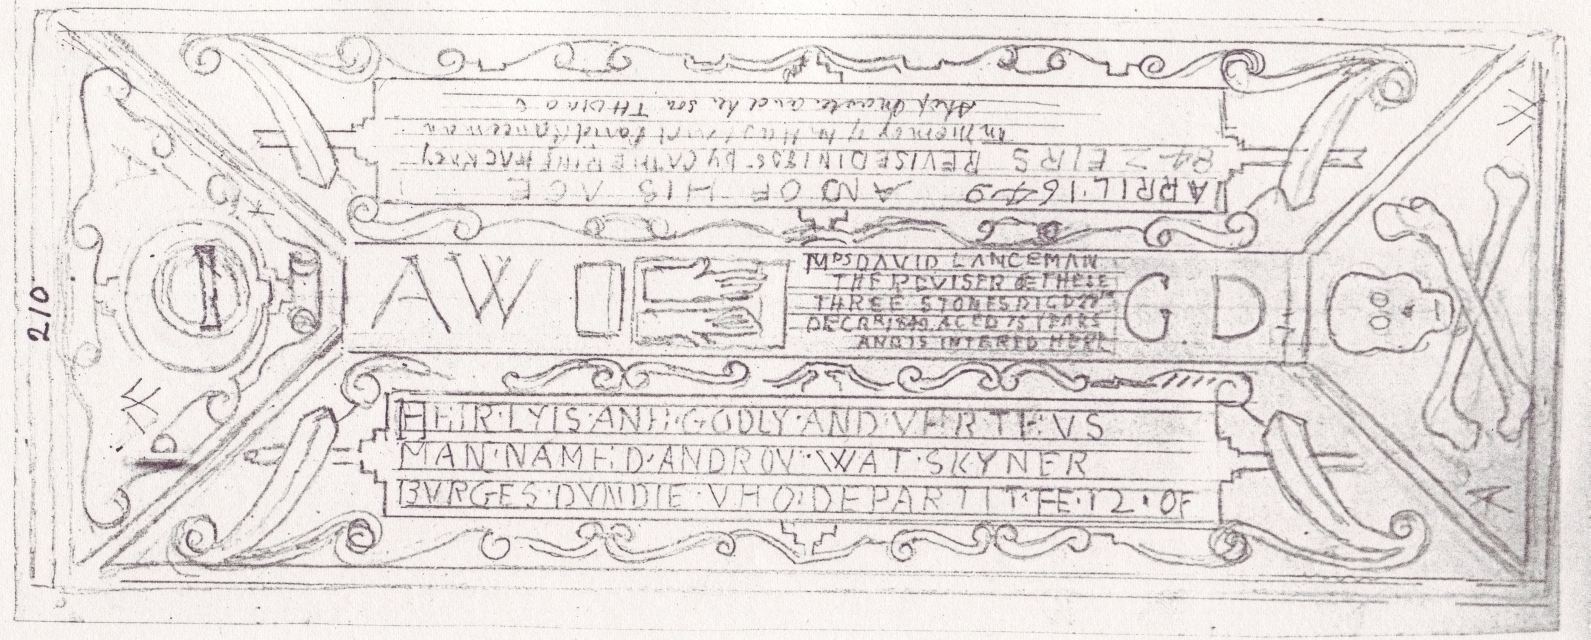 HEIR·LYIS·ANE·GODLY·AND·VERTEVS
MAN·NAMED·ANDROV·WAT·SKYNER
BVRGES·DVNDIE·VHO·DEPARTIT·FE·12·OF
APRIL·1649 AND OF HIS AGE
84 ZEIRS REVISED IN 1805 by CATHERINE MACKNEY
in memory of
and her son
AW
MRS DAVID LANCEMAN
THE REVISER OF THESE
THREE STONES DIED 22ND
AGED 75 YEARS
AND IS INTERED HERE
G.D
210